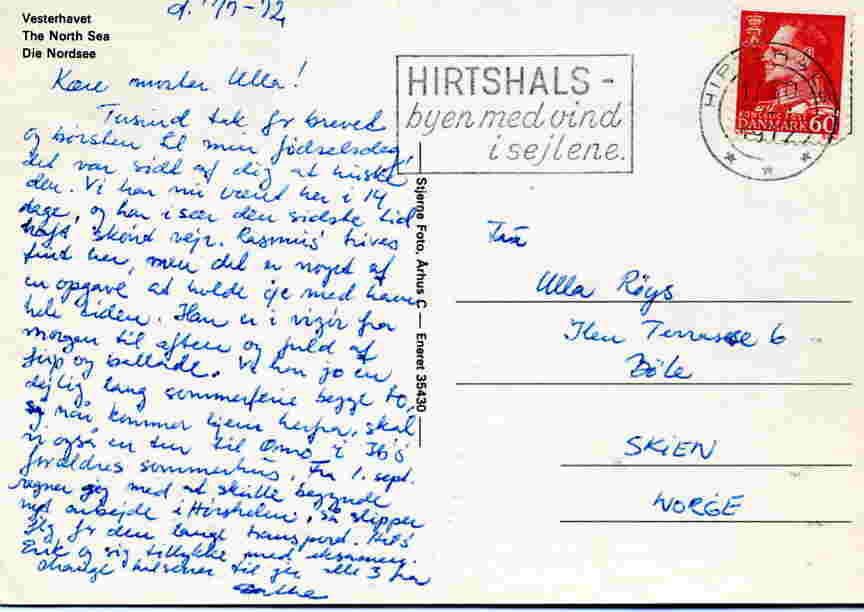 Vesterhavet
The North Sea
Die Nordsee
Kære moster Ulla!
Tusind tak for brevet
og børsten til min fødselsdag!
det var sødt af dig at huske
den. Vi har nu været her i 14
dage, og har især den sidste tid
haft skønt vejr. Rasmus trives
fint her, men det er noget af
en opgave at holde øje med ham
hele tiden. Han er i vigør fra
morgen til aften og fuld af
fup og ballade. Vi har jo en
dejlig lang sommerferie begge to,
så når kommer hjem herfra, skal
vi også en tur til Omø i Ib's
forældres sommerhus. Fra 1. sept.
regner jeg med at skulle begynde
med arbejde i Hørsholm, så slipper
jeg for den lange transport. Hils
Erik og sig tillykke med eksamen.
Mange hilsener til jer alle 3 fra
HIRTSHALS -
byen med vind
i sejlene.
HIRTSHALS
DANMARK 60
Stjerne Foto, Århus C — Eneret 35430
Fru
Ulla Røys
Ilen Terrasse 6
Böle
SKIEN
NORGE